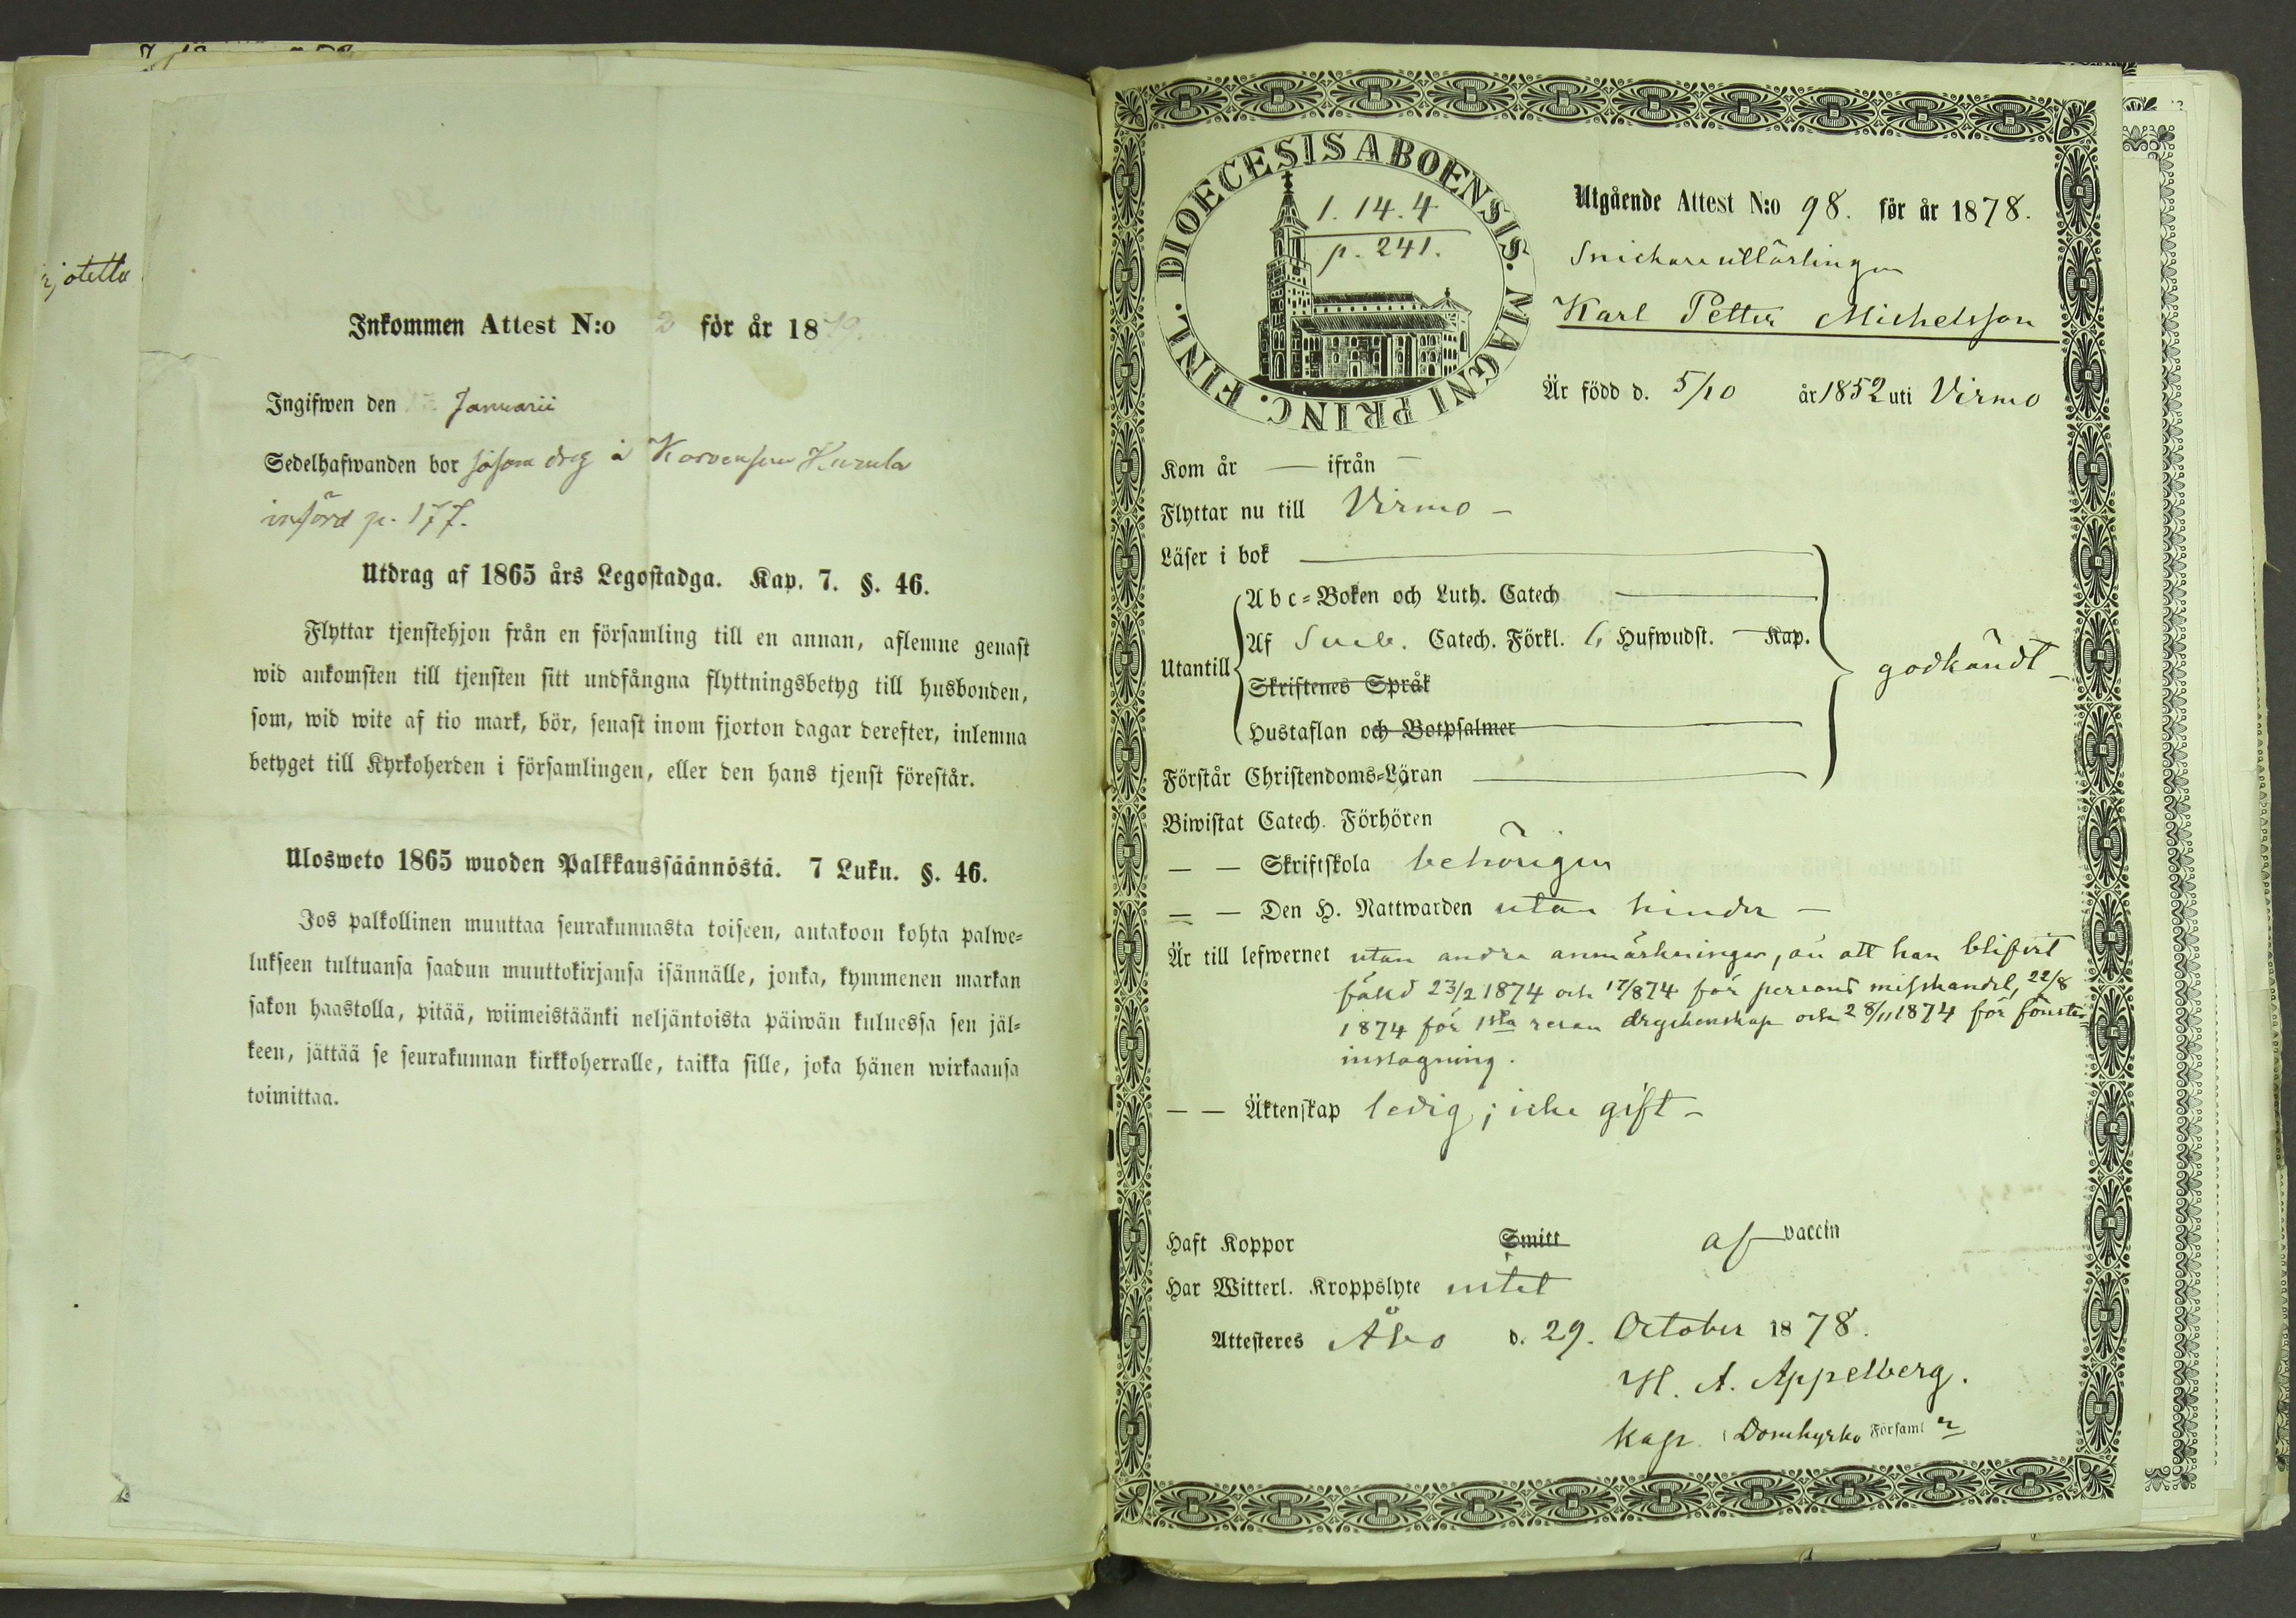 jotella
Inkommen Attest N:o 2 för år 1879.
Ingifwen den Januarii
Sedelhafwanden bor såsom drg å Korvensuu Kurula
införd p. 177.
Utdrag af 1865 års Legostadga. Kap. 7. §. 46.
Flyttar tjenstehjon från en församling till en annan, aflemne genast
wid ankomsten till tjensten sitt undfångna flyttningsbetyg till husbonden,
som, wid wite af tio mark, bör, senast inom fjorton dagar derefter, inlemna
betyget till Kyrkoherden i församlingen, eller den hans tjenst förestår.
Ulosweto 1865 wuoden Palkkaussäännöstä. 7 Luku. §. 46.
Jos palkollinen muuttaa seurakunnasta toiseen, antakoon kohta palwe=
lukseen tultuansa saadun muuttokirjansa isännälle, jonka, kymmenen markan
sakon haastolla, pitää, wiimeistäänki neljäntoista päiwän kuluessa sen jäl=
keen, jättää se seurakunnan kirkkoherralle, taikka sille, joka hänen wirkaansa
toimittaa.
DIOECESIS ABOENSIS. MAGNI PRINC. FINL.
1. 14. 4
p. 241.
Utgående Attest N:o 98. för år 1878.
Snickareutlärlingen
Karl Petter Michelsson
Är född d. 5/10 år 1852 uti Virmo
Kom år — ifrån —
Flyttar nu till Virmo –
Läser i bok
Utantill
Abc=Boken och Luth. Catech
Af Sveb. Catech. Förkl. 6 Hufwudst. — Kap.
Skriftenes Språk
Hustaflan och Botpsalmer
godkändt –
Förstår Christendoms=Läran
Biwistat Catech. Förhören
— — Skriftskola behörigen
— — Den H. Nattwarden utan hinder —
Är till lefwernet utan andra anmärkningar, än att han blifvit
fälld 23/2 1874 och 17/8 74 för persons misshandel, 22/8
1874 för 1sta resan dryckenskap och 28/11 1874 för fönster
inslagning.
— — Äktenskap ledig; icke gift –
Haft Koppor Smitt af vaccin
Har Witterl. Kroppslyte intet
Attesteres Åbo d. 29. October 1878.
H. A. Appelberg.
Kapl. i Domkyrko Församl n